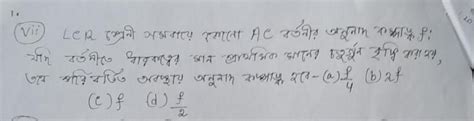 (vii) LCR শ্রেণী সমবায়ে কোনো AC বর্তনীর অনুনাদ কম্পাঙ্ক f;
যদি বর্তনীতে ধারকত্বের মান প্রাথমিক মানের চতুর্গুণ বৃদ্ধি করা হয়,
তবে পরিবর্তিত অবস্থায় অনুনাদ কম্পাঙ্ক হবে- (a) f/4 (b) 2f
(c) f (d) f/2